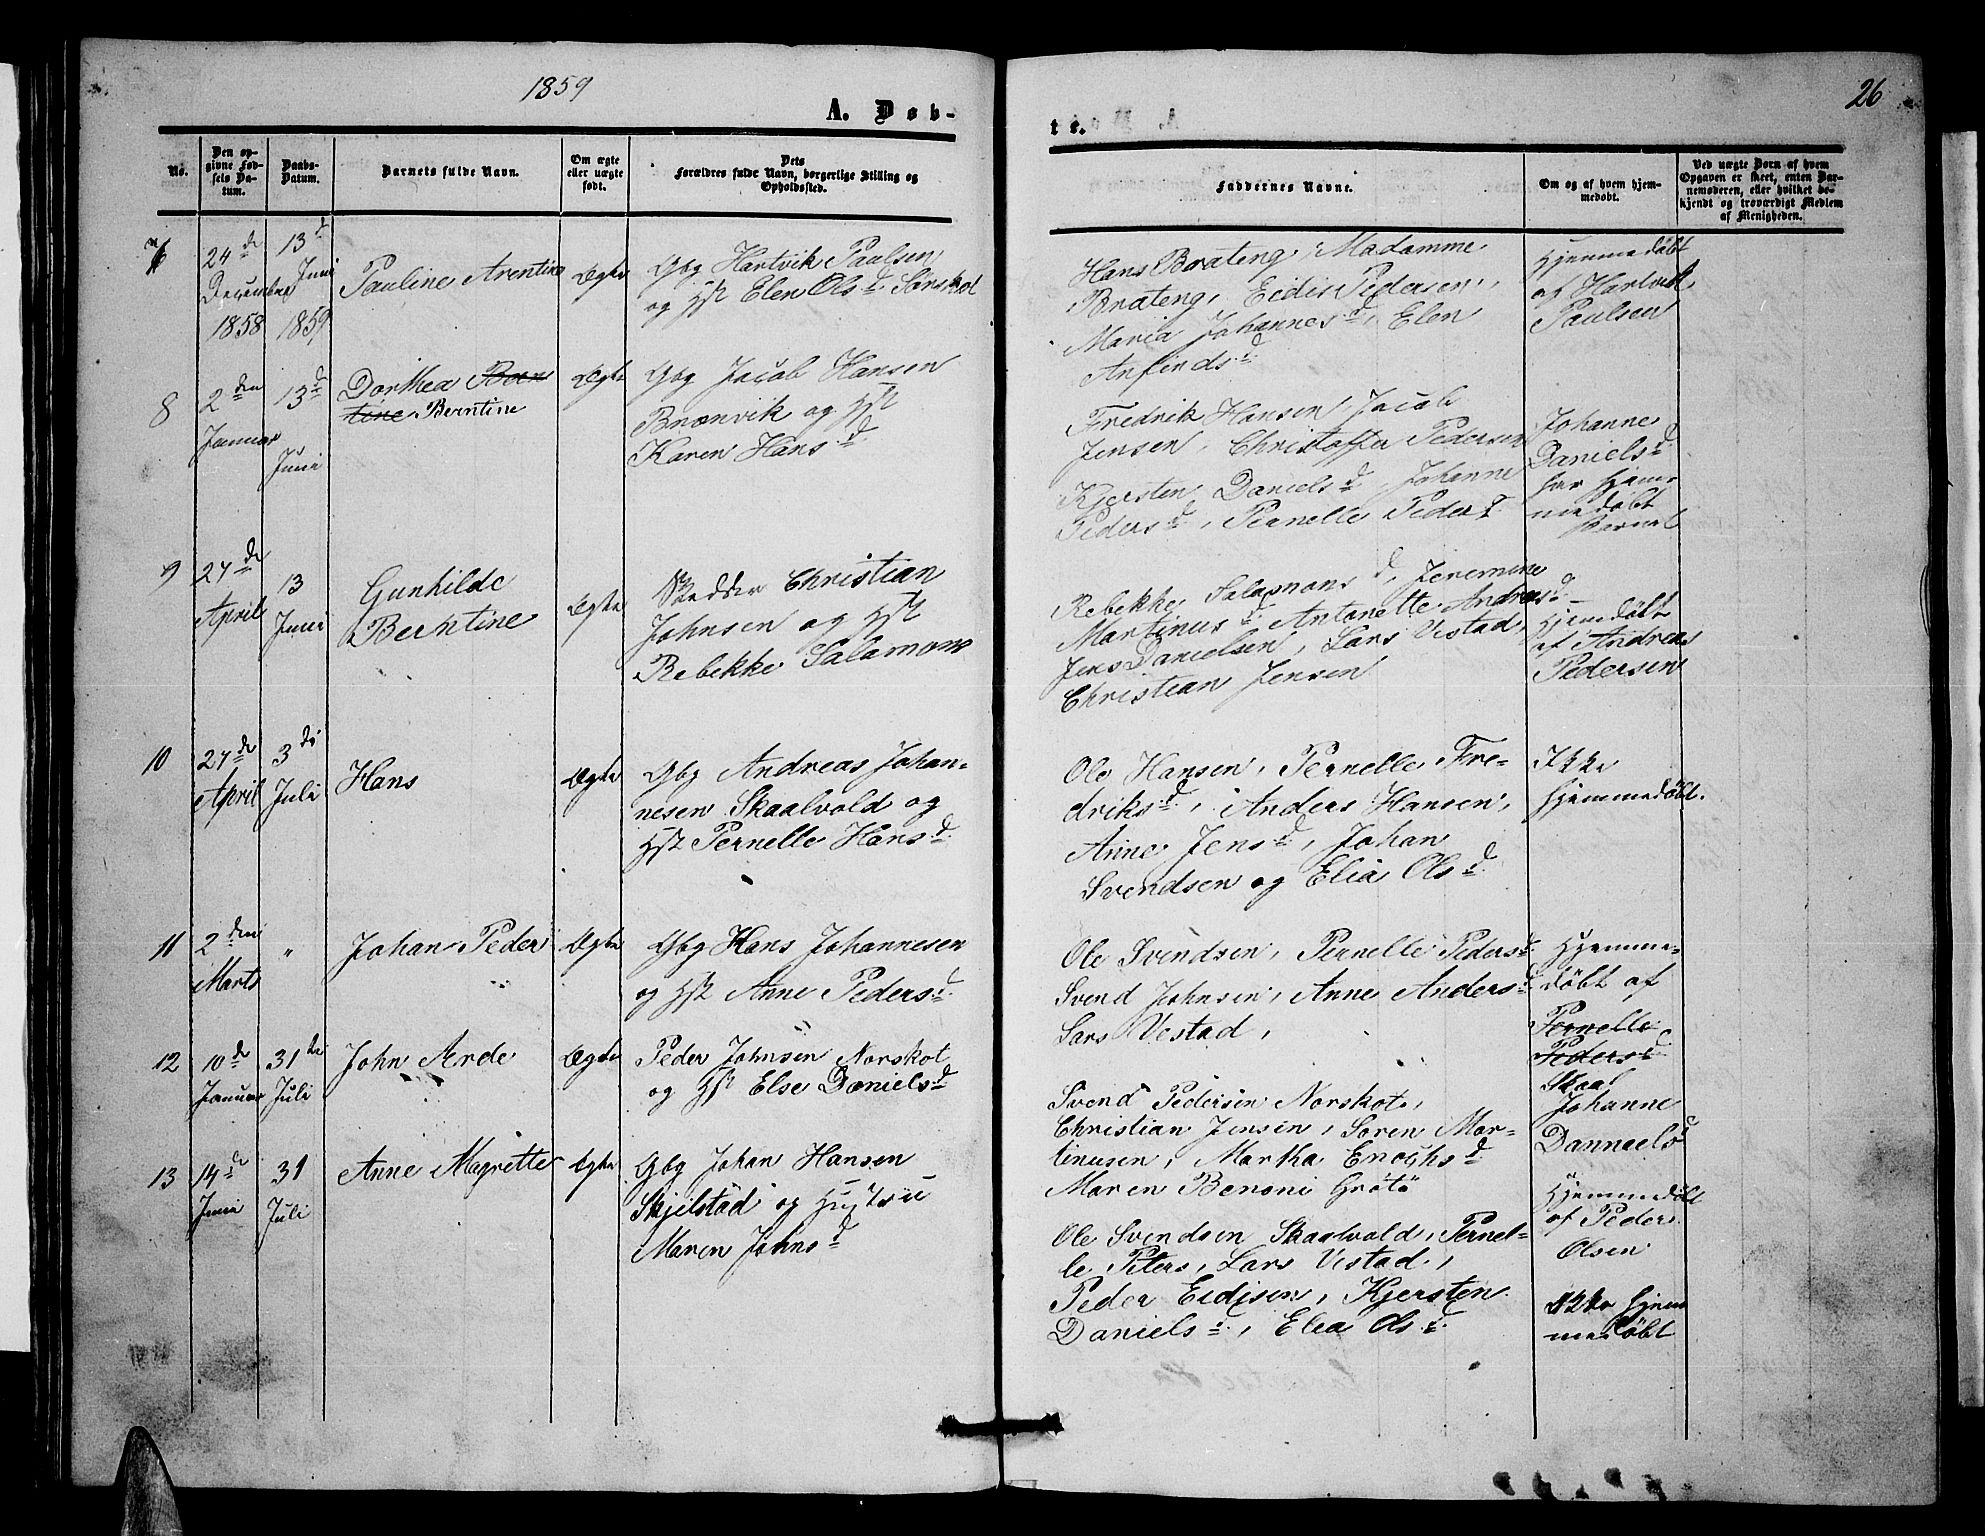 1859
26
A. Døb-
te.
No.
Den op-
givne Fød-
sels Da-
tum.
Daabs-
Datum.
Barnets fulde Navn.
Om ægte
eller uægte
født.
Dets
Forældres fulde Navn, borgerlige Stilling og
Opholdssted.
Faddernes Navne.
Om og af hvem hjem-
medøbt.
Ved uægte Børn af hvem
Opgaven er skeet, enten Bar-
nemoderen, eller hvilket be-
kjendt og troværdigt Medlem
af Menigheden.
7
24de
December
1858
13d
Juni
1859
Pauline Arentine
Ægte
Gbg Hartvik Paulsen
og Hst Elen Olsd Sørskot
Hans Brateng, Madamme
Brateng, Eedis Pedersen,
Maria Johannesd, Elen
Anfindsd
Hjemmedøbt
af Hartvik
Paulsen
8
2den
Januar
13d
Juni
Dorthea Bern
tine Berntine
Ægte
Gbg Jacob Hansen
Brænvik og Hst
Karen Hansd
Fredrik Hansen, Jacob
Jensen, Christoffer Pedersen
Kjersten Danielsd, Johanne
Pedersd, Pernelle Pedersd
Johanne
Danielsd
har hjem
medøbt
Barnet
9
27de
April
13
Juni
Gunhilde
Berntine
Ægte
Christian
Johnsen og Hst
Rebekke Salamons
Rebekke Salamonsd, Jeremine
Martinusd Antonette Andreasd
Jens Danielsen, Lars Vestad,
Christian Jensen
Hjemdøbt
af Andreas
Pedersen
10
27de
April
3de
Juli
Hans
Ægte
Gbg Andreas Johan-
nesen Skaalvold og
Hst Pernelle Hansd
Ole Hansen, Pernelle Fre-
driksd, Anders Hansen,
Anne Jensd, Johan
Svendsen og Elia Olsd
Ikke
hjemmedøbt.
11
2den
Marts
"
Johan Peder
Ægte
Gbg Hans Johannesen
og Hst Anne Pedersd
Ole Svendsen, Pernelle Pedersd
Svend Johnsen, Anne Andersd
Lars Vestad,
Hjemme-
døbt af
Pernelle
Pedersd
Skaal
Johanne
Dannaelsd
12
10de
Januar
31te
Juli
John Arde
Ægte
Peder Johnsen Norskot
og Hst Else Danielsd
Svend Pedersen Norskot,
Christian Jensen, Soren Mar-
tinusen, Martha Enochsd
Maren Benoni Grøtø
Hjemmedøbt
af Peder
Olsen
13
14de
Juni
31
Juli
Anne Magrette
Ægte
Gbg Johan Hansen
Skjelstad og Hustru
Maren Johnsd
Ole Svendsen Skaalvold, Pernel-
le Peters, Lars Vestad,
Peder Eedisen, Kjersten
Danielsd, Elea Olsd
Ikke hjem
medøbt